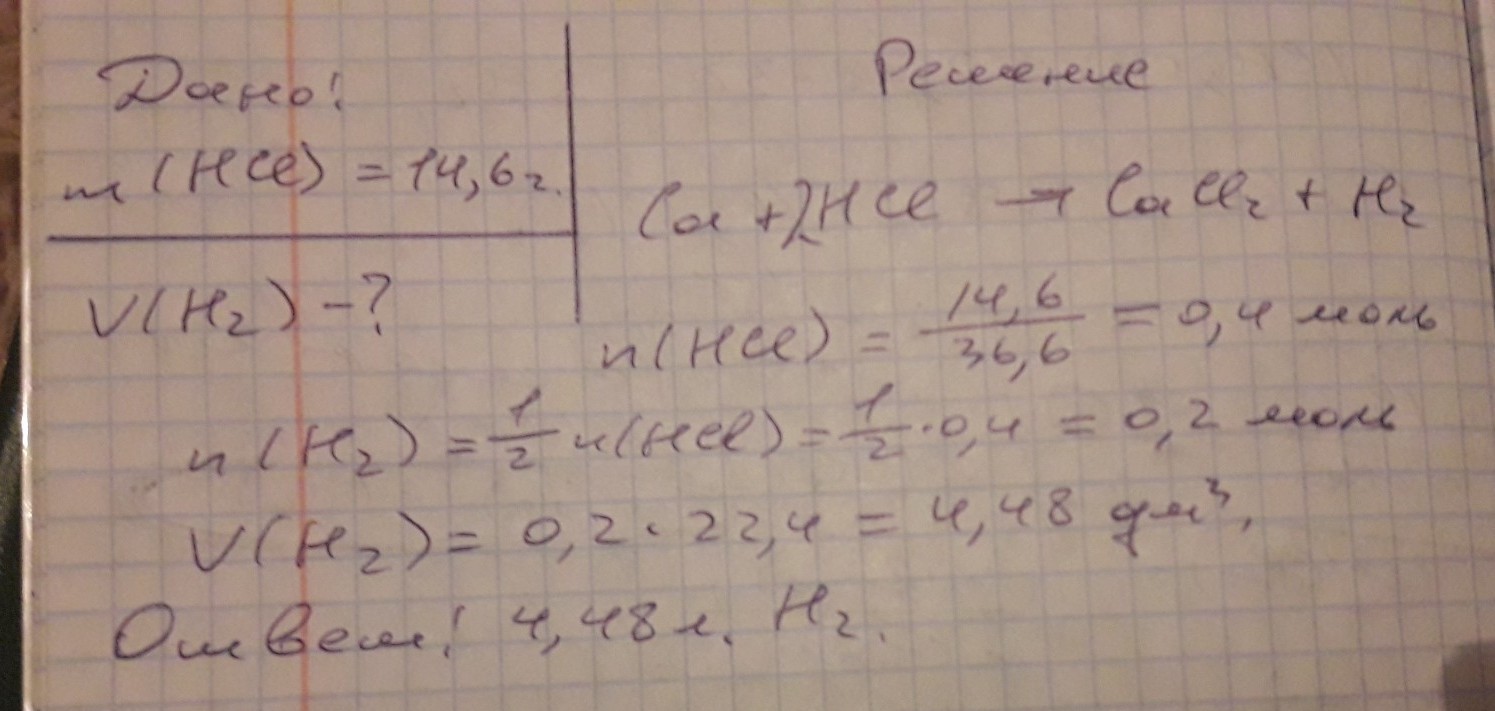 Дано:
m (HCl) = 14,6 г.
V(H₂) - ?
Решение
Ca + 2HCl → CaCl₂ + H₂
n(HCl) = 14,6 / 36,6 = 0,4 моль
n(H₂) = 1/2 n(HCl) = 1/2 · 0,4 = 0,2 моль
V(H₂) = 0,2 · 22,4 = 4,48 дм³.
Ответ: 4,48 л. H₂.